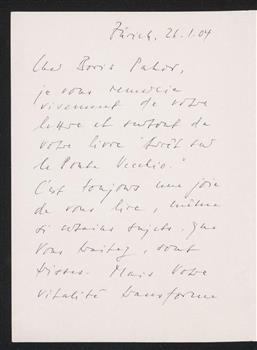 Zürich, 26.1.04
Cher Boris Pahor,
je vous remercie
vivement de votre
lettre et surtout de
votre livre "Arrêt sur
le Ponte Vecchio."
C'est toujours une joie
de vous lire, même
si certains sujets, que
vous traitez, sont
tristes. Mais votre
vitalité transforme